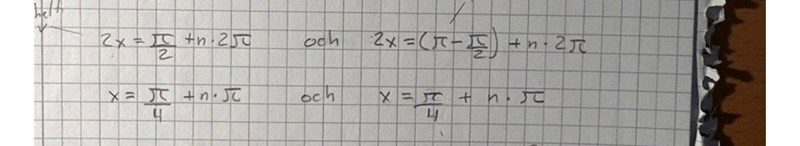 2x = π/2 + n·2π och 2x = (π - π/2) + n·2π
x = π/4 + n·π och x = π/4 + n·π